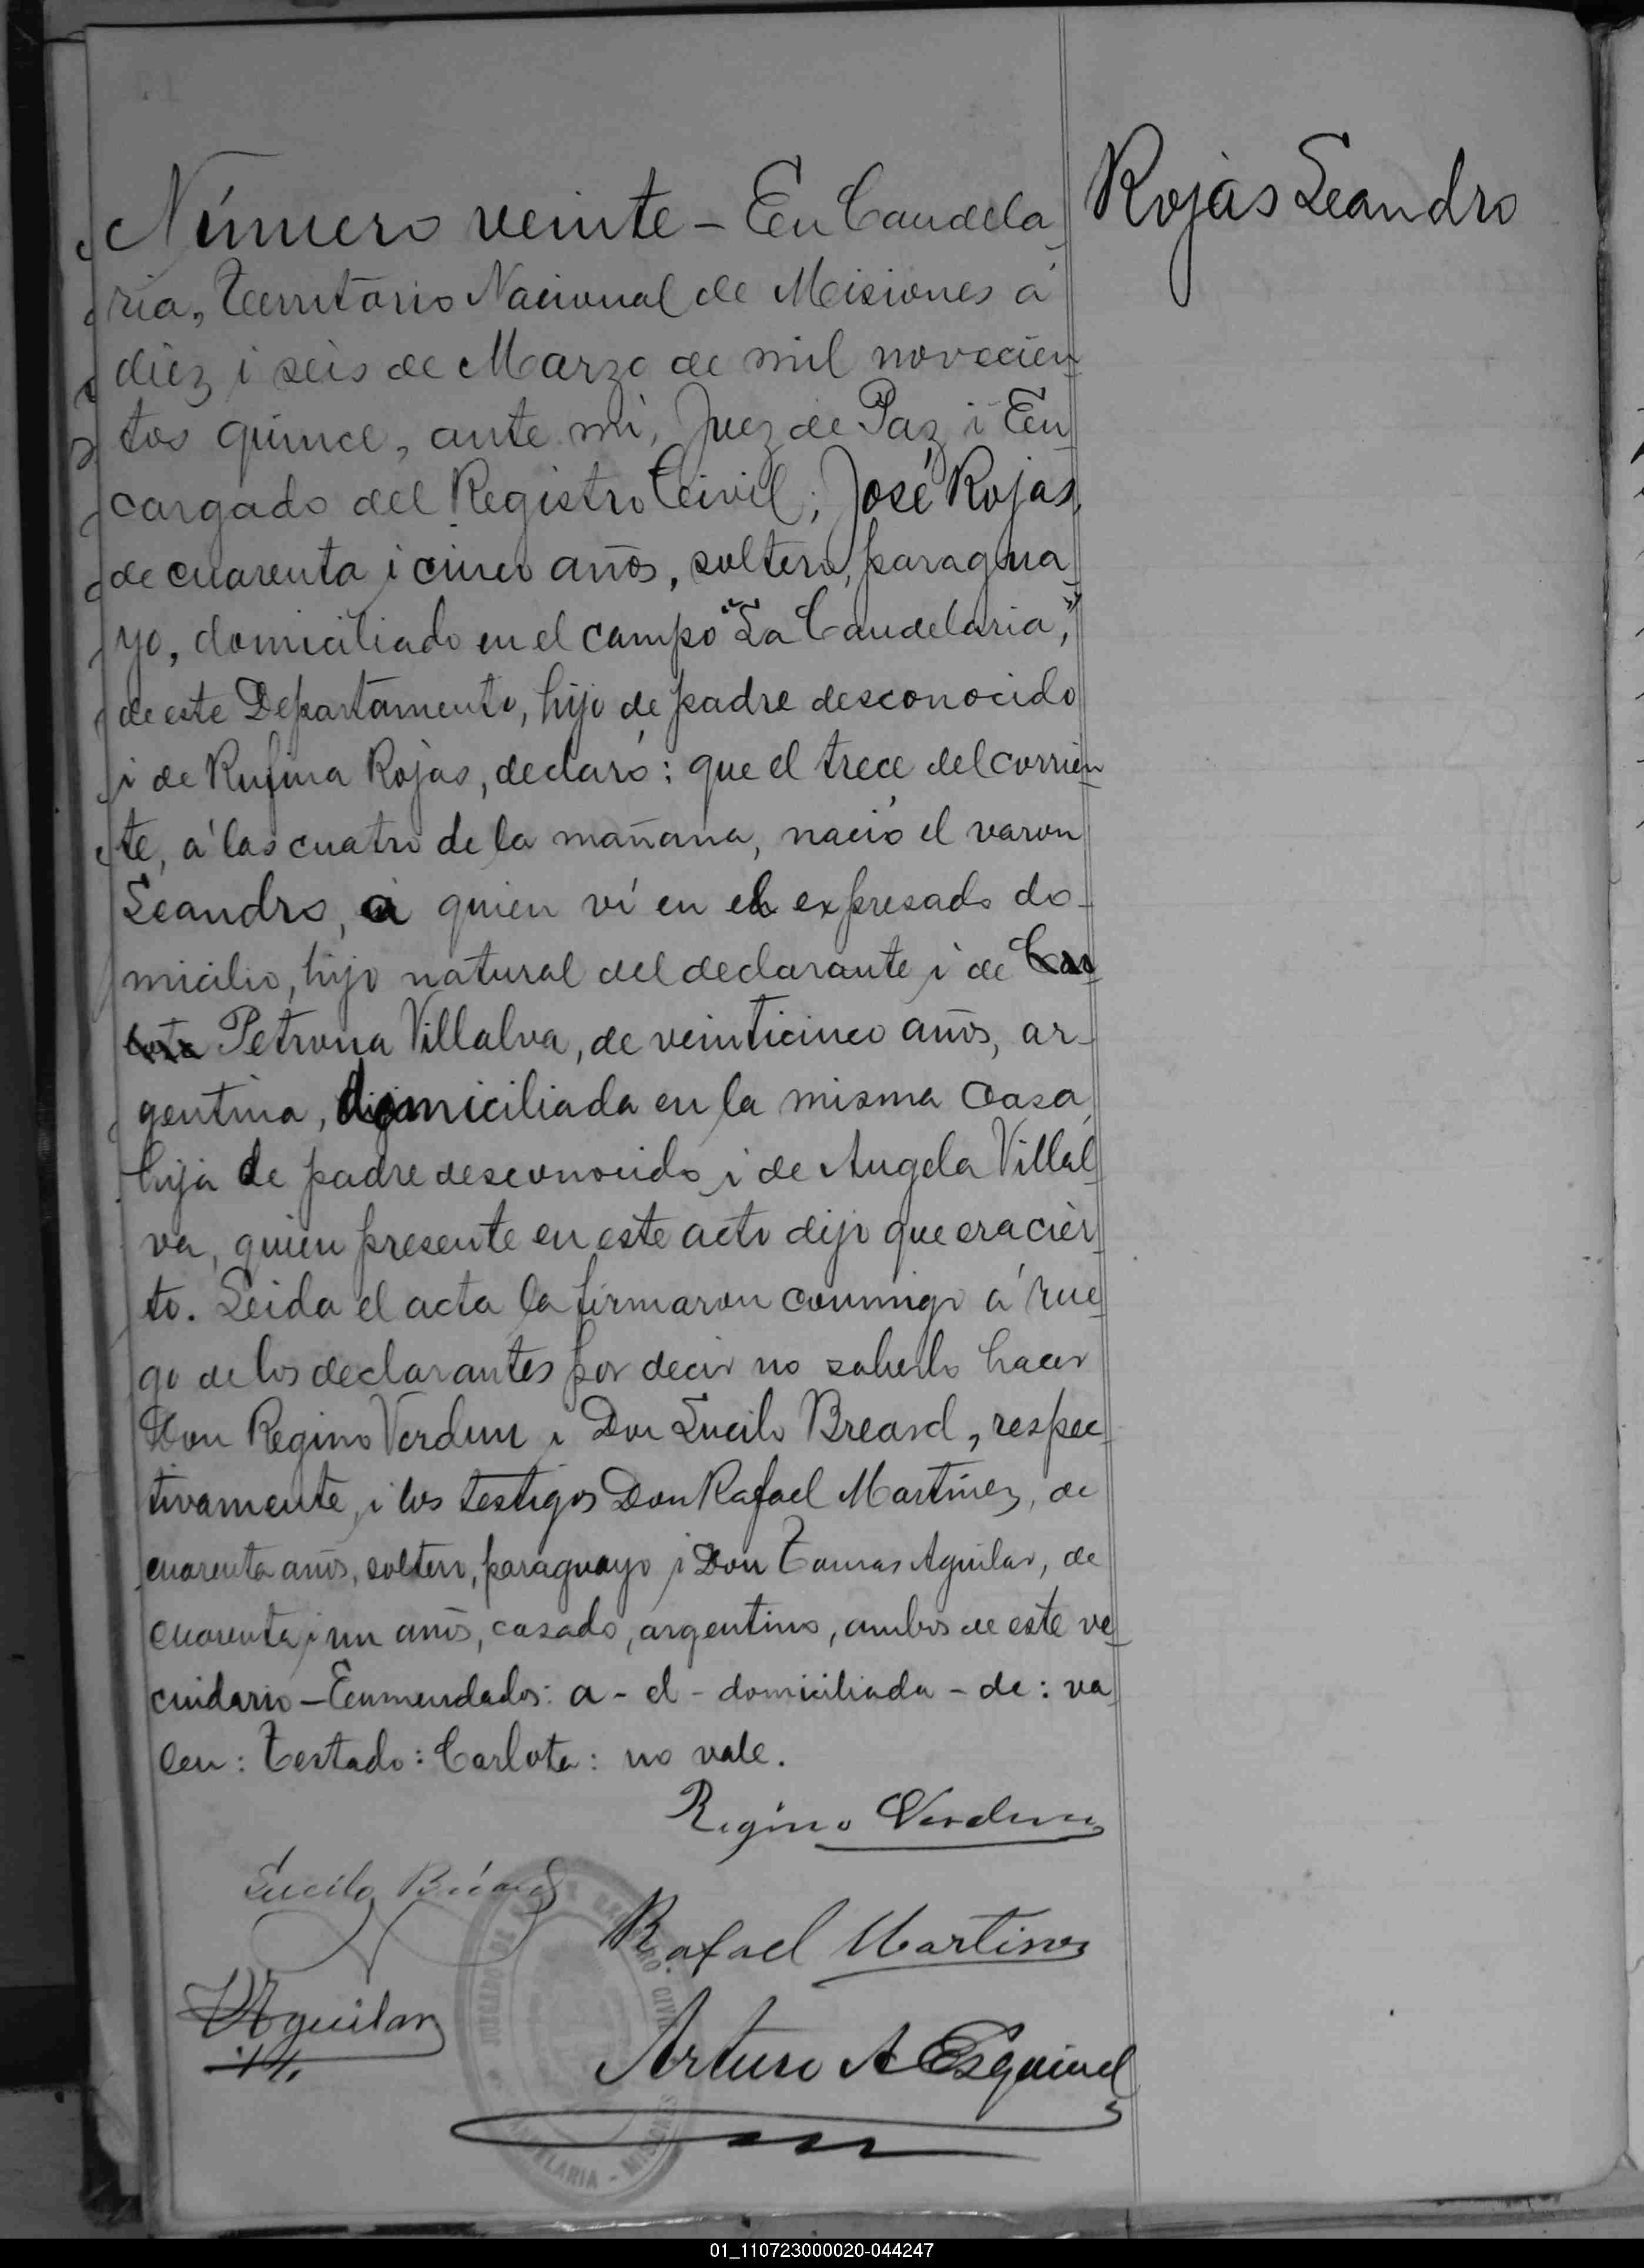 Rojas Leandro
Número veinte - En Candela-
ria, Territorio Nacional de Misiones á
diez i seis de Marzo de mil novecien-
tos quince, ante mí, Juez de Paz i En-
cargado del Registro Civil; José Rojas,
de cuarenta i cinco años, soltero, paragua-
yo, domiciliado en el campo "La Candelaria",
de este Departamento, hijo de padre desconocido
i de Rufina Rojas, declaró: que el trece del corrien-
te, á las cuatro de la mañana, nació el varon
Leandro, a quien ví en el expresado do-
micilio, hijo natural del declarante i de Car-
lota Petrona Villalva, de veinticinco años, ar-
gentina, domiciliada en la misma casa,
hija de padre desconocido i de Angela Villal-
va, quien presente en este acto dijo que era cier-
to. Leida el acta la firmaron conmigo á rue-
go de los declarantes por decir no saberlo hacer
Don Regino Verdun i Don Lucilo Breard, respec-
tivamente, i los testigos Don Rafael Martinez, de
cuarenta años, soltero, paraguayo i Don Tomas Aguilar, de
cuarenta i un años, casado, argentino, ambos de este ve-
cindario - Enmendados: a - el - domiciliada - de: va-
len: Testado: Carlota: no vale.
Regino Verdun
Lucilo Bréard
Rafael Martinez
TAguilar
Arturo A Esquivel
REGISTRO CIVIL
CANDELARIA - MISIONES
01_110723000020-044247